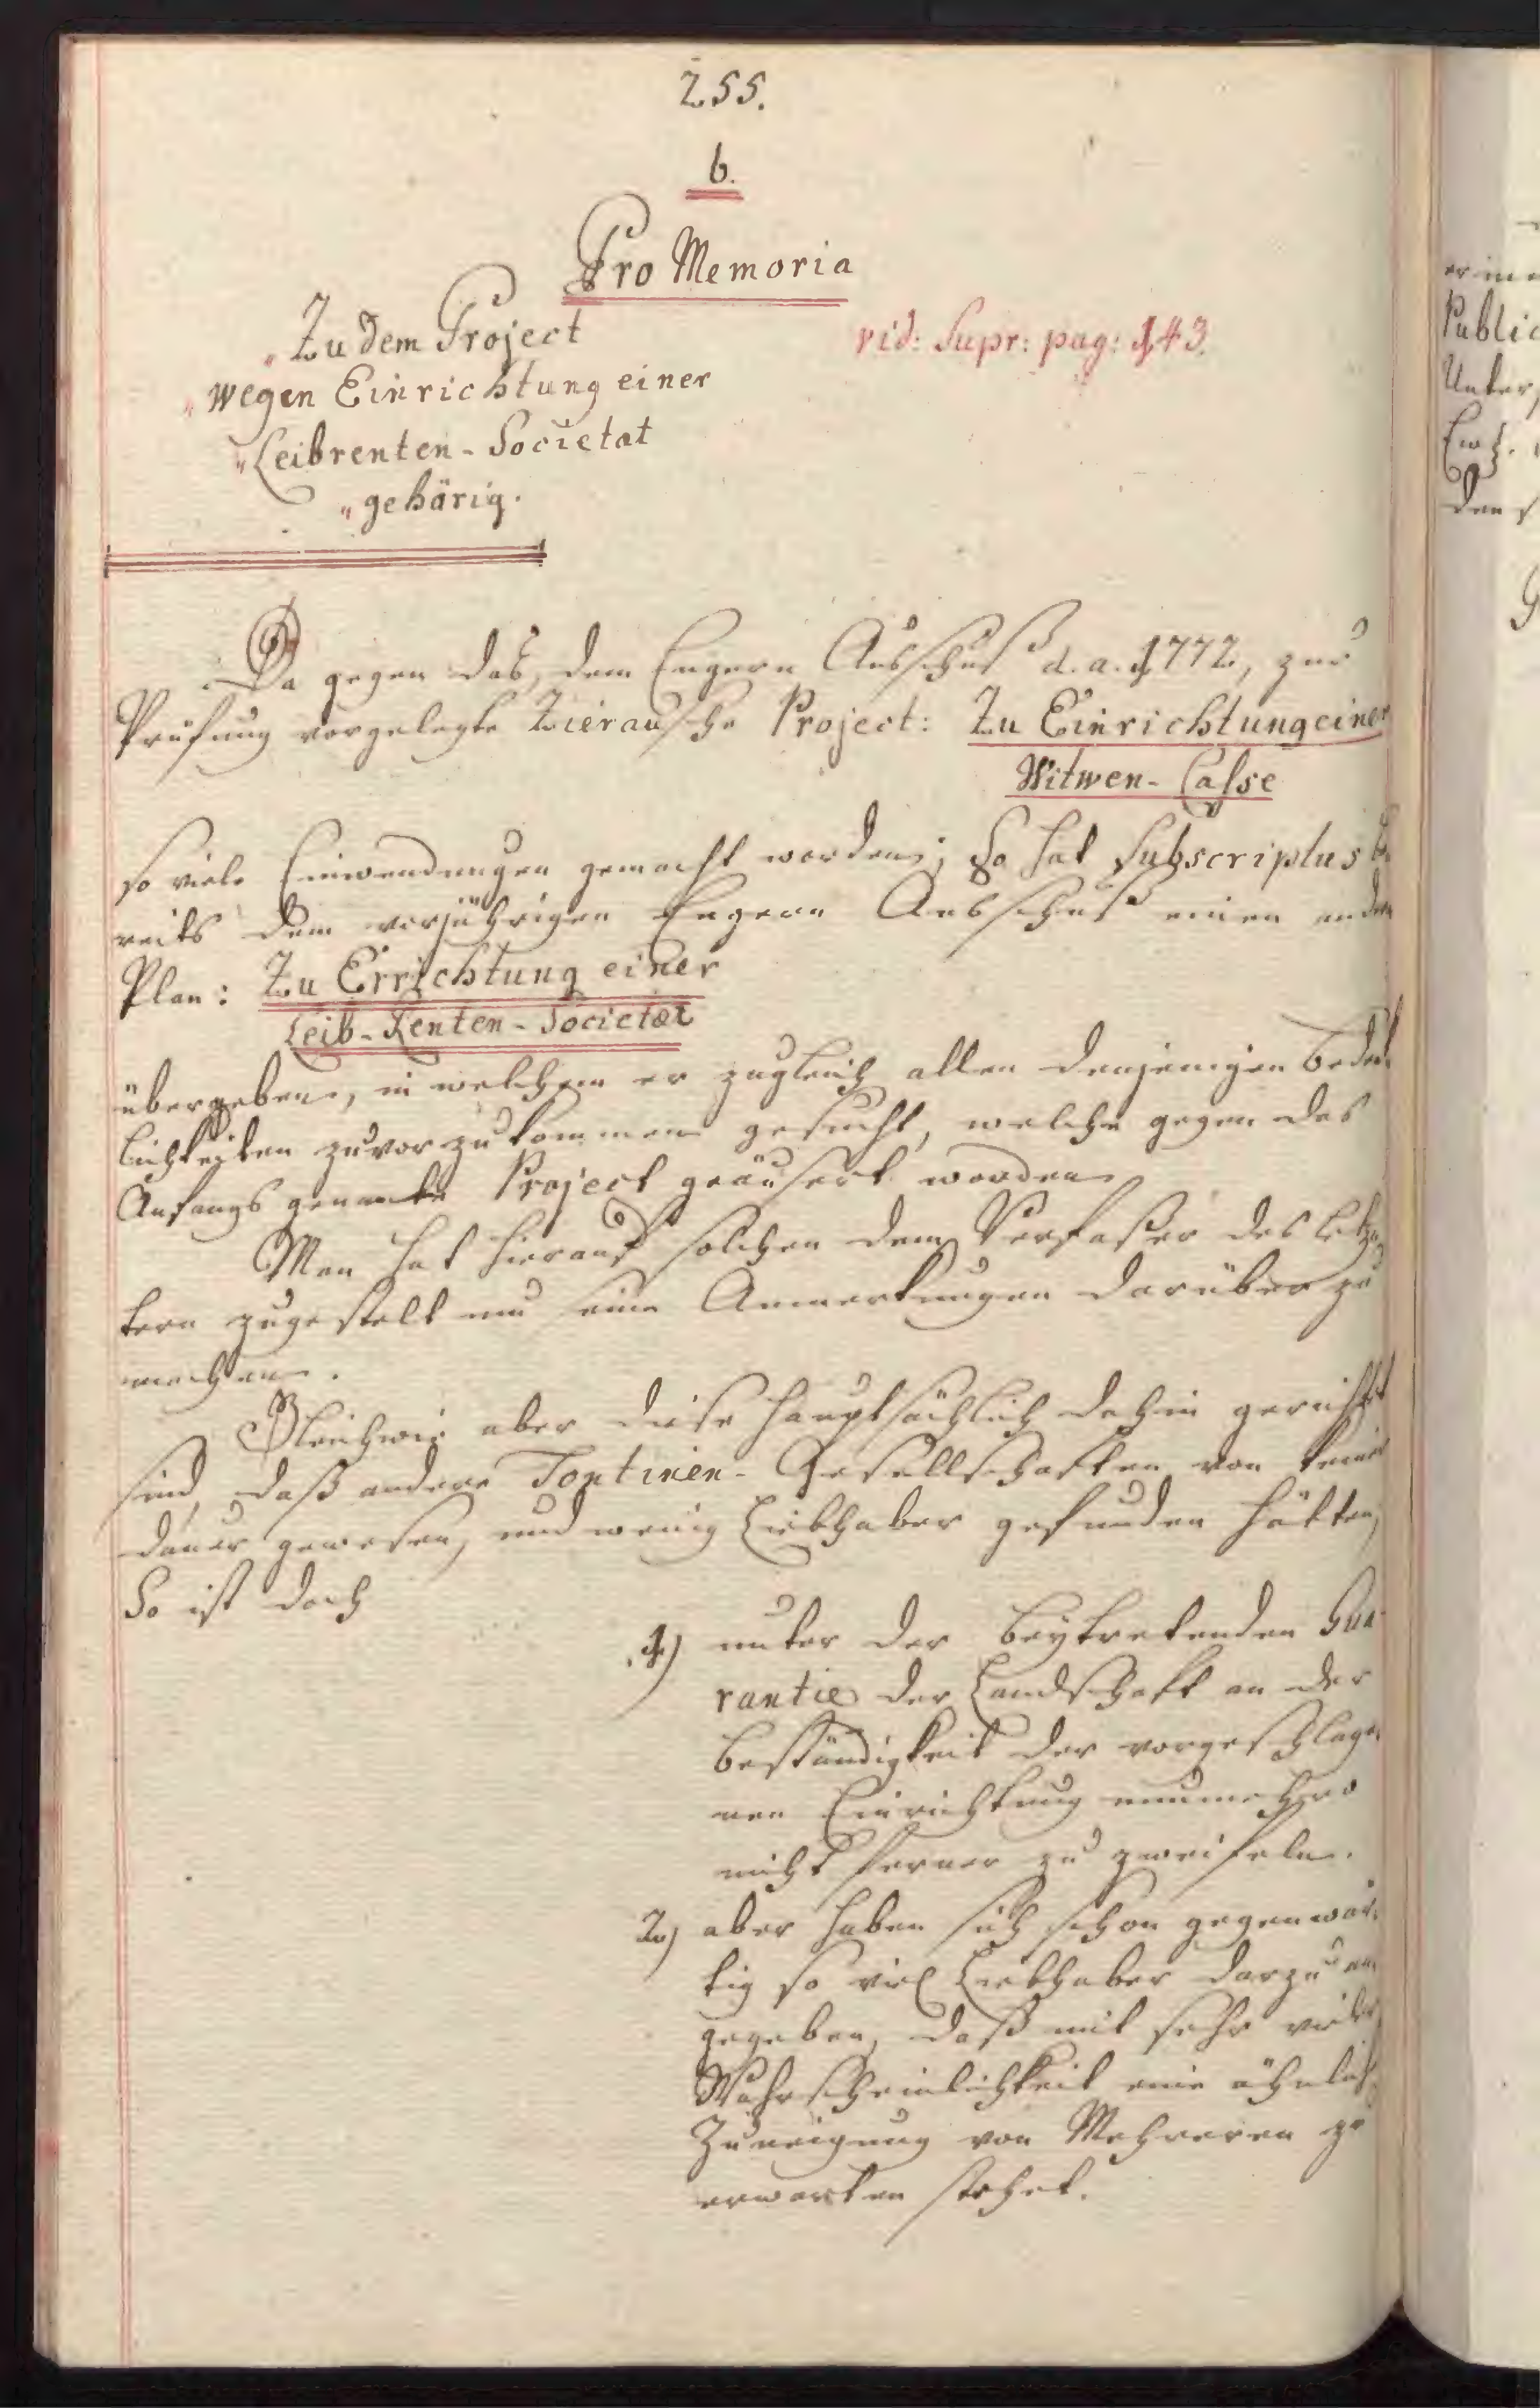 255.
b.
Pro Memoria
„Zu dem Project
vid: Supr: pag: 143.
„wegen Einrichtung einer
„Leibrenten-Societat
„gehörig.
Da gegen das, dem Engern Ausschuß d. a. 1772, zur
Prüfung vorgelegte Zierausche Project: Zu Einrichtung einer
Witwen-Casse
so viele Einwendungen gemacht worden; So hat Subscriptus be
reits dem vorjährigen Engern Ausschuß einen andern
Plan: Zu Errichtung einer
Leib-Renten-Societæt
übergeben, in welchem er zugleich allen denjenigen Bedenk
lichkeiten zuvorzukommen gesucht, welche gegen das
Anfangs genannte Project geäusert worden
Man hat hierauf solchen dem Verfaßer des letz
tern zugestelt um seine Anmerkungen darüber zu
machen.
Gleichwie aber diese hauptsächlich dahin gerichtet
sind, daß andere Tontinen-Gesellschaften von keiner
dauer gewesen, und wenig Liebhaber gefunden hätten,
So ist doch
1) unter der beytretenden Gua
rantie der Landschaft an der
beständigkeit der vorgeschlage
nen Einrichtung nunmehro
nicht ferner zu zweifeln.
2) aber haben sich schon gegenwär
tig so viel Liebhaber darzu an
gegeben, daß mit sehr vieler
Wahrscheinlichkeit eine ähnliche
Zuneigung von Mehreren zu
erwarten stehet.
Public
Unter